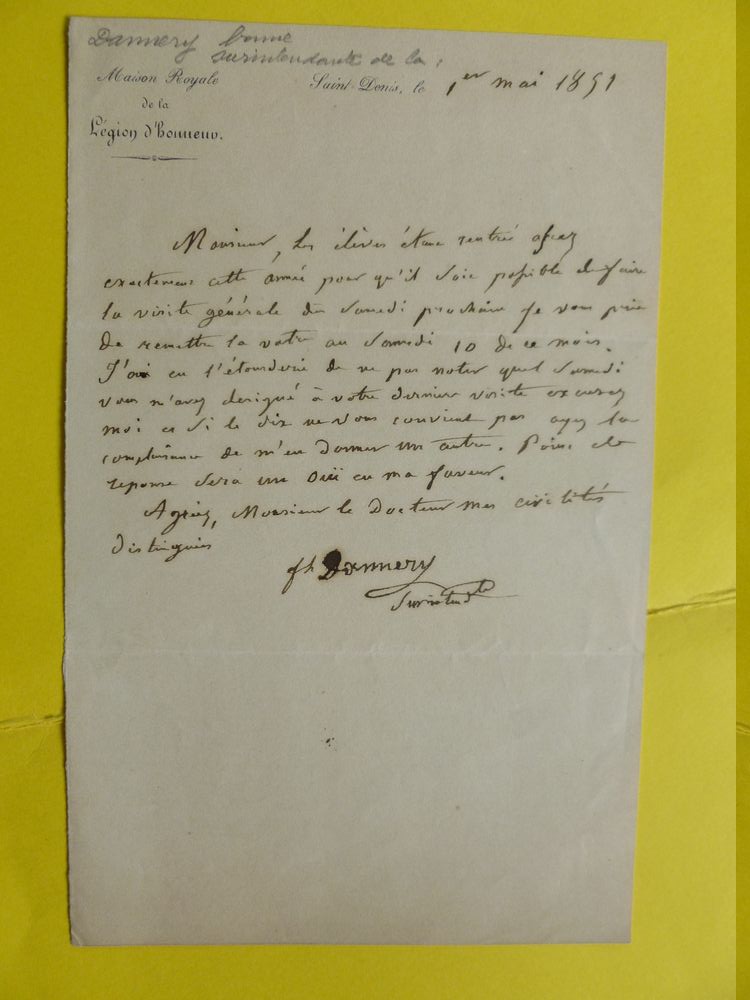 Dannery bonne
surintendante de la :
Maison Royale
de la
Légion d'Honneur.
Saint-Denis, le 1er mai 1851
Monsieur, Les élèves étant rentré assez
exactement cette année pour qu'il soit possible de faire
la visite générale du Samedi prochain je vous prie
de remettre la votre au Samedi 10 de ce mois.
J'ai eu l'étourderie de ne pas noter quel Samedi
vous m'avez designé à votre dernier visite excusez
moi et si le dix ne vous convient pas ayez la
complaisance de m'en donner un autre. Point de
reponse sera un Oui en ma faveur.
Agréez, Monsieur le Docteur mes civilités
distinguées
Dannery
Surintend te